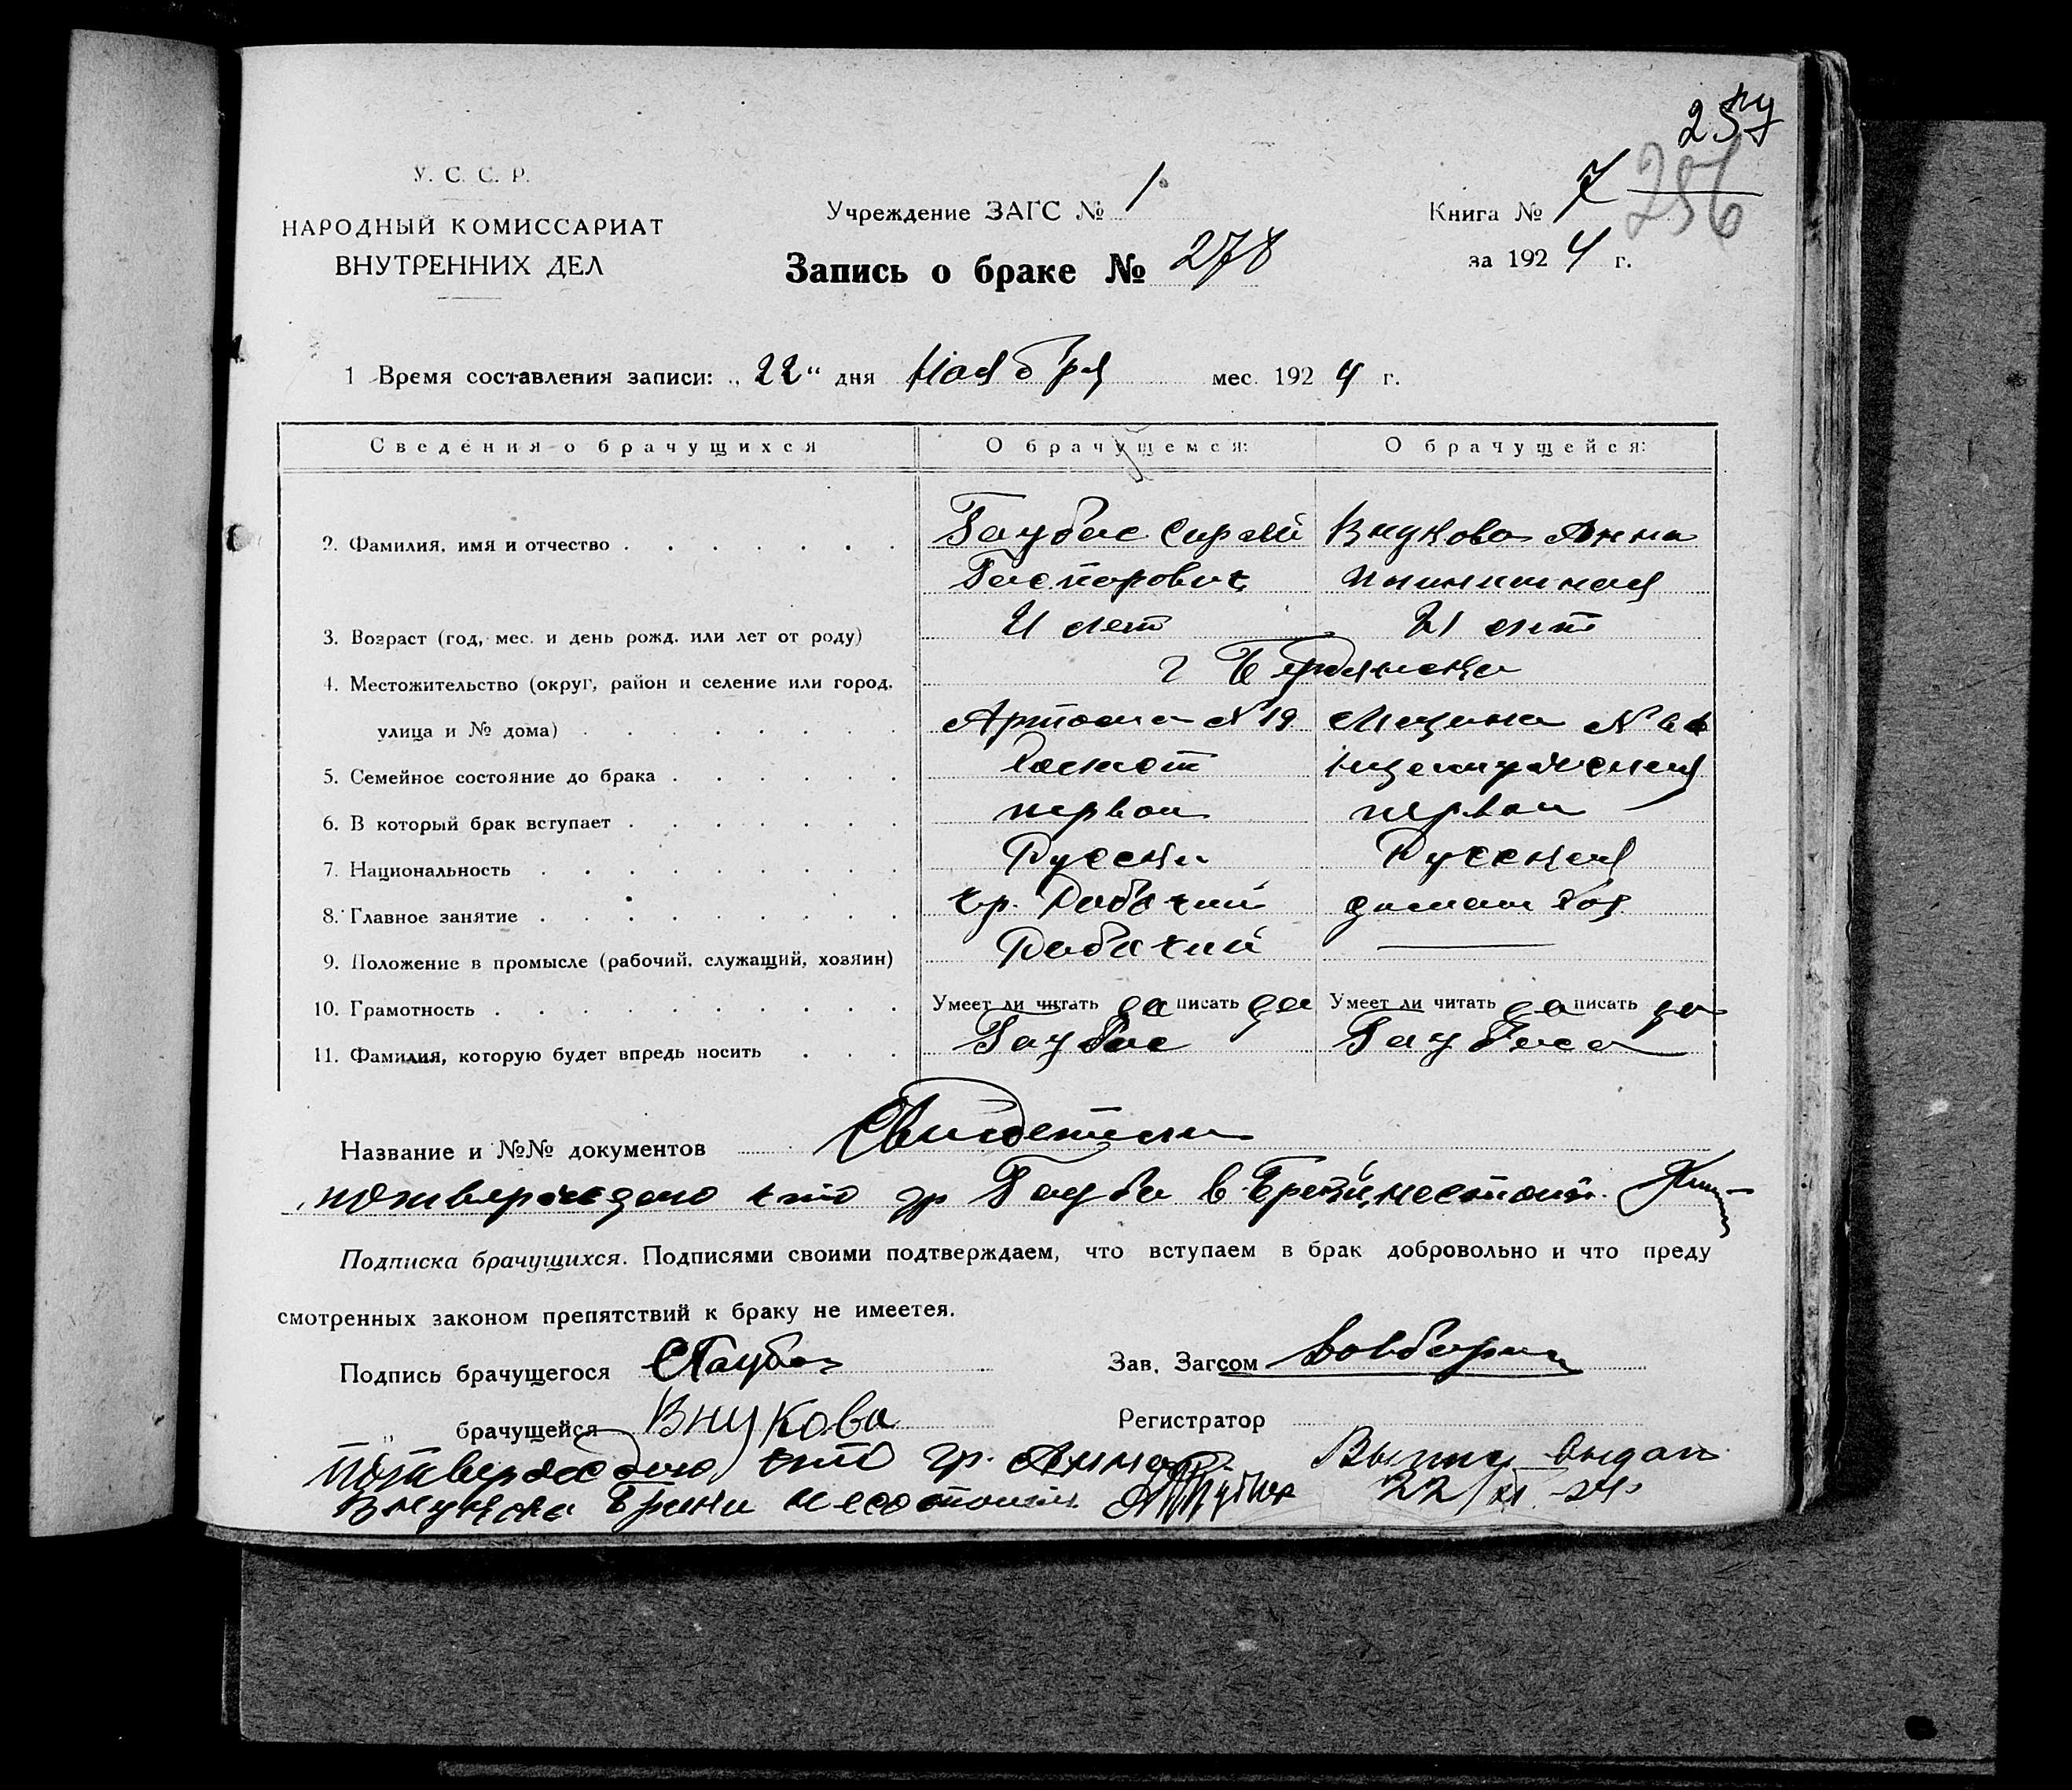 257
256
У. С. С. Р.
НАРОДНЫЙ КОМИССАРИАТ
ВНУТРЕННИХ ДЕЛ
Учреждение ЗАГС № 1
Запись о браке № 278
Книга № 7
за 1924 г.
1 Время составления записи: „22“ дня Ноября мес. 1924 г.
Сведения о брачущихся О брачущемся: О брачущейся:
2. Фамилия, имя и отчество Гаубас Внукова Анна
Гаспарович
3. Возраст (год, мес. и день рожд. или лет от роду) 21 лет 21 лет
4. Местожительство (округ, район и селение или город, г Бердянска
улица и № дома) Артема № 19
5. Семейное состояние до брака Холост
6. В который брак вступает первой первой
7. Национальность Русски Русская
8. Главное занятие чр. Рабочий домаш хоз
9. Положение в промысле (рабочий, служащий, хозяин) Рабочий
10. Грамотность Умеет ли читать да писать да Умеет ли читать да писать да
11. Фамилия, которую будет впредь носить Гаубас Гаубаса
Название и №№ документов Свидетели
подтверждаю что гр Гауба в несостоит
Подписка брачущихся. Подписями своими подтверждаем, что вступаем в брак добровольно и что преду
смотренных законом препятствий к браку не имеетея.
Подпись брачущегося СГаубас Зав. Загсом
„ брачущейся Внукова Регистратор
Подтверждаю что гр. Анна Выпись выдан
Внукова несостоит 22/XI 24